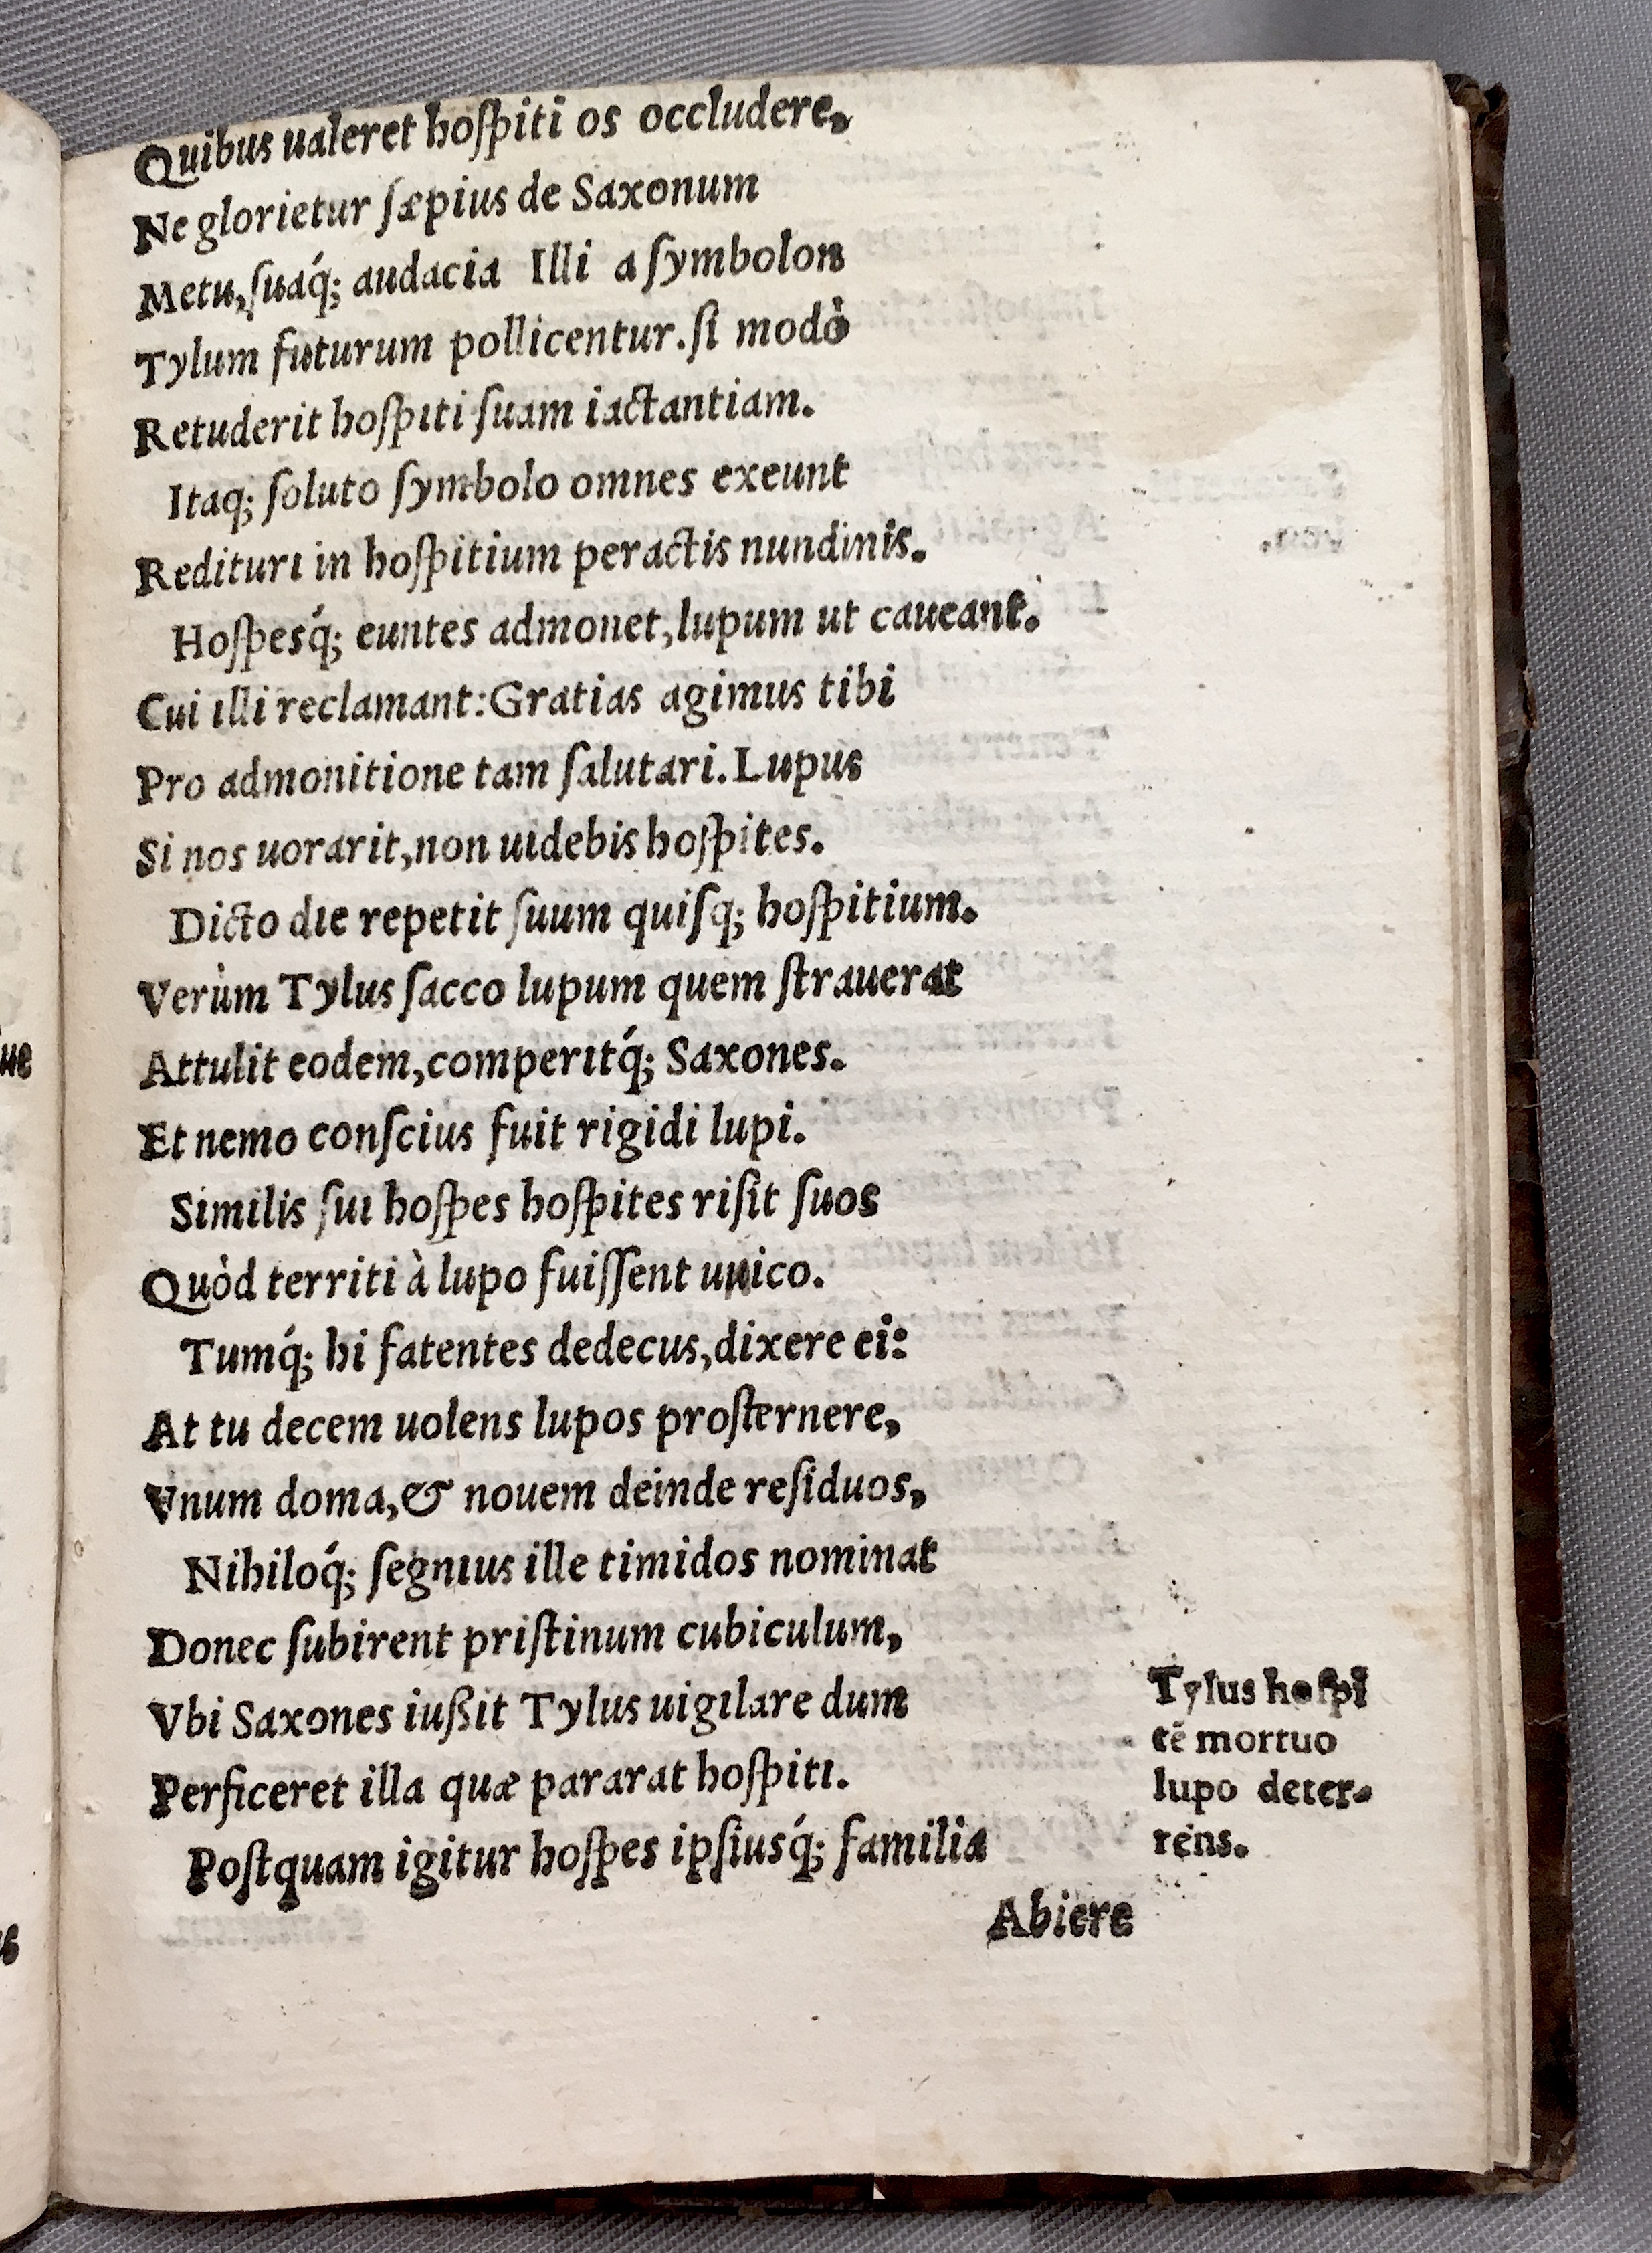 Quibus ualeret hoſpiti os occludere,
Ne glorietur ſæpius de Saxonum
Metu,ſuaq́; audacia Illi a ſymbolon
Tylum futurum pollicentur.ſi modò
Retuderit hoſpiti ſuam iactantiam.
Itaq; ſoluto ſymbolo omnes exeunt
Redituri in hoſpitium peractis nundinis.
Hoſpesq́; euntes admonet,lupum ut caueant.
Cui illi reclamant:Gratias agimus tibi
Pro admonitione tam ſalutari.Lupus
Si nos uorarit,non uidebis hoſpites.
Dicto die repetit ſuum quiſq; hoſpitium.
Verùm Tylus ſacco lupum quem ſtrauerat
Attulit eodem,comperitq́; Saxones.
Et nemo conſcius fuit rigidi lupi.
Similis ſui hoſpes hoſpites riſit ſuos
Quòd territi à lupo fuiſſent unico.
Tumq́; hi fatentes dedecus,dixere ei:
At tu decem uolens lupos proſternere,
Vnum doma,& nouem deinde reſiduos,
Nihiloq́; ſegnius ille timidos nominat
Donec ſubirent priſtinum cubiculum,
Vbi Saxones iußit Tylus uigilare dum
Perficeret illa quæ pararat hoſpiti.
Poſtquam igitur hoſpes ipſiusq́; familia
Abiere
Tylus hoſpi
tē mortuo
lupo deter-
rens.